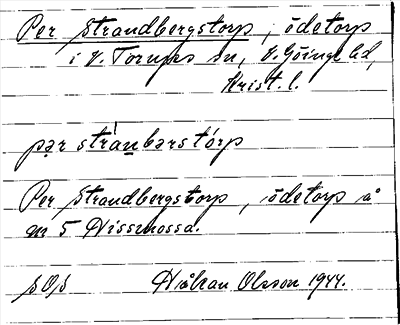 Per Strandbergstorp, ödetorp
i V. Torups sn, V. Göinge hd,
Krist. l.
pạr strànbærstórp
Per Strandbergstorp, ödetorp å
nr 5 Nissmossa.
s. O. s. Håkan Olsson 1944.